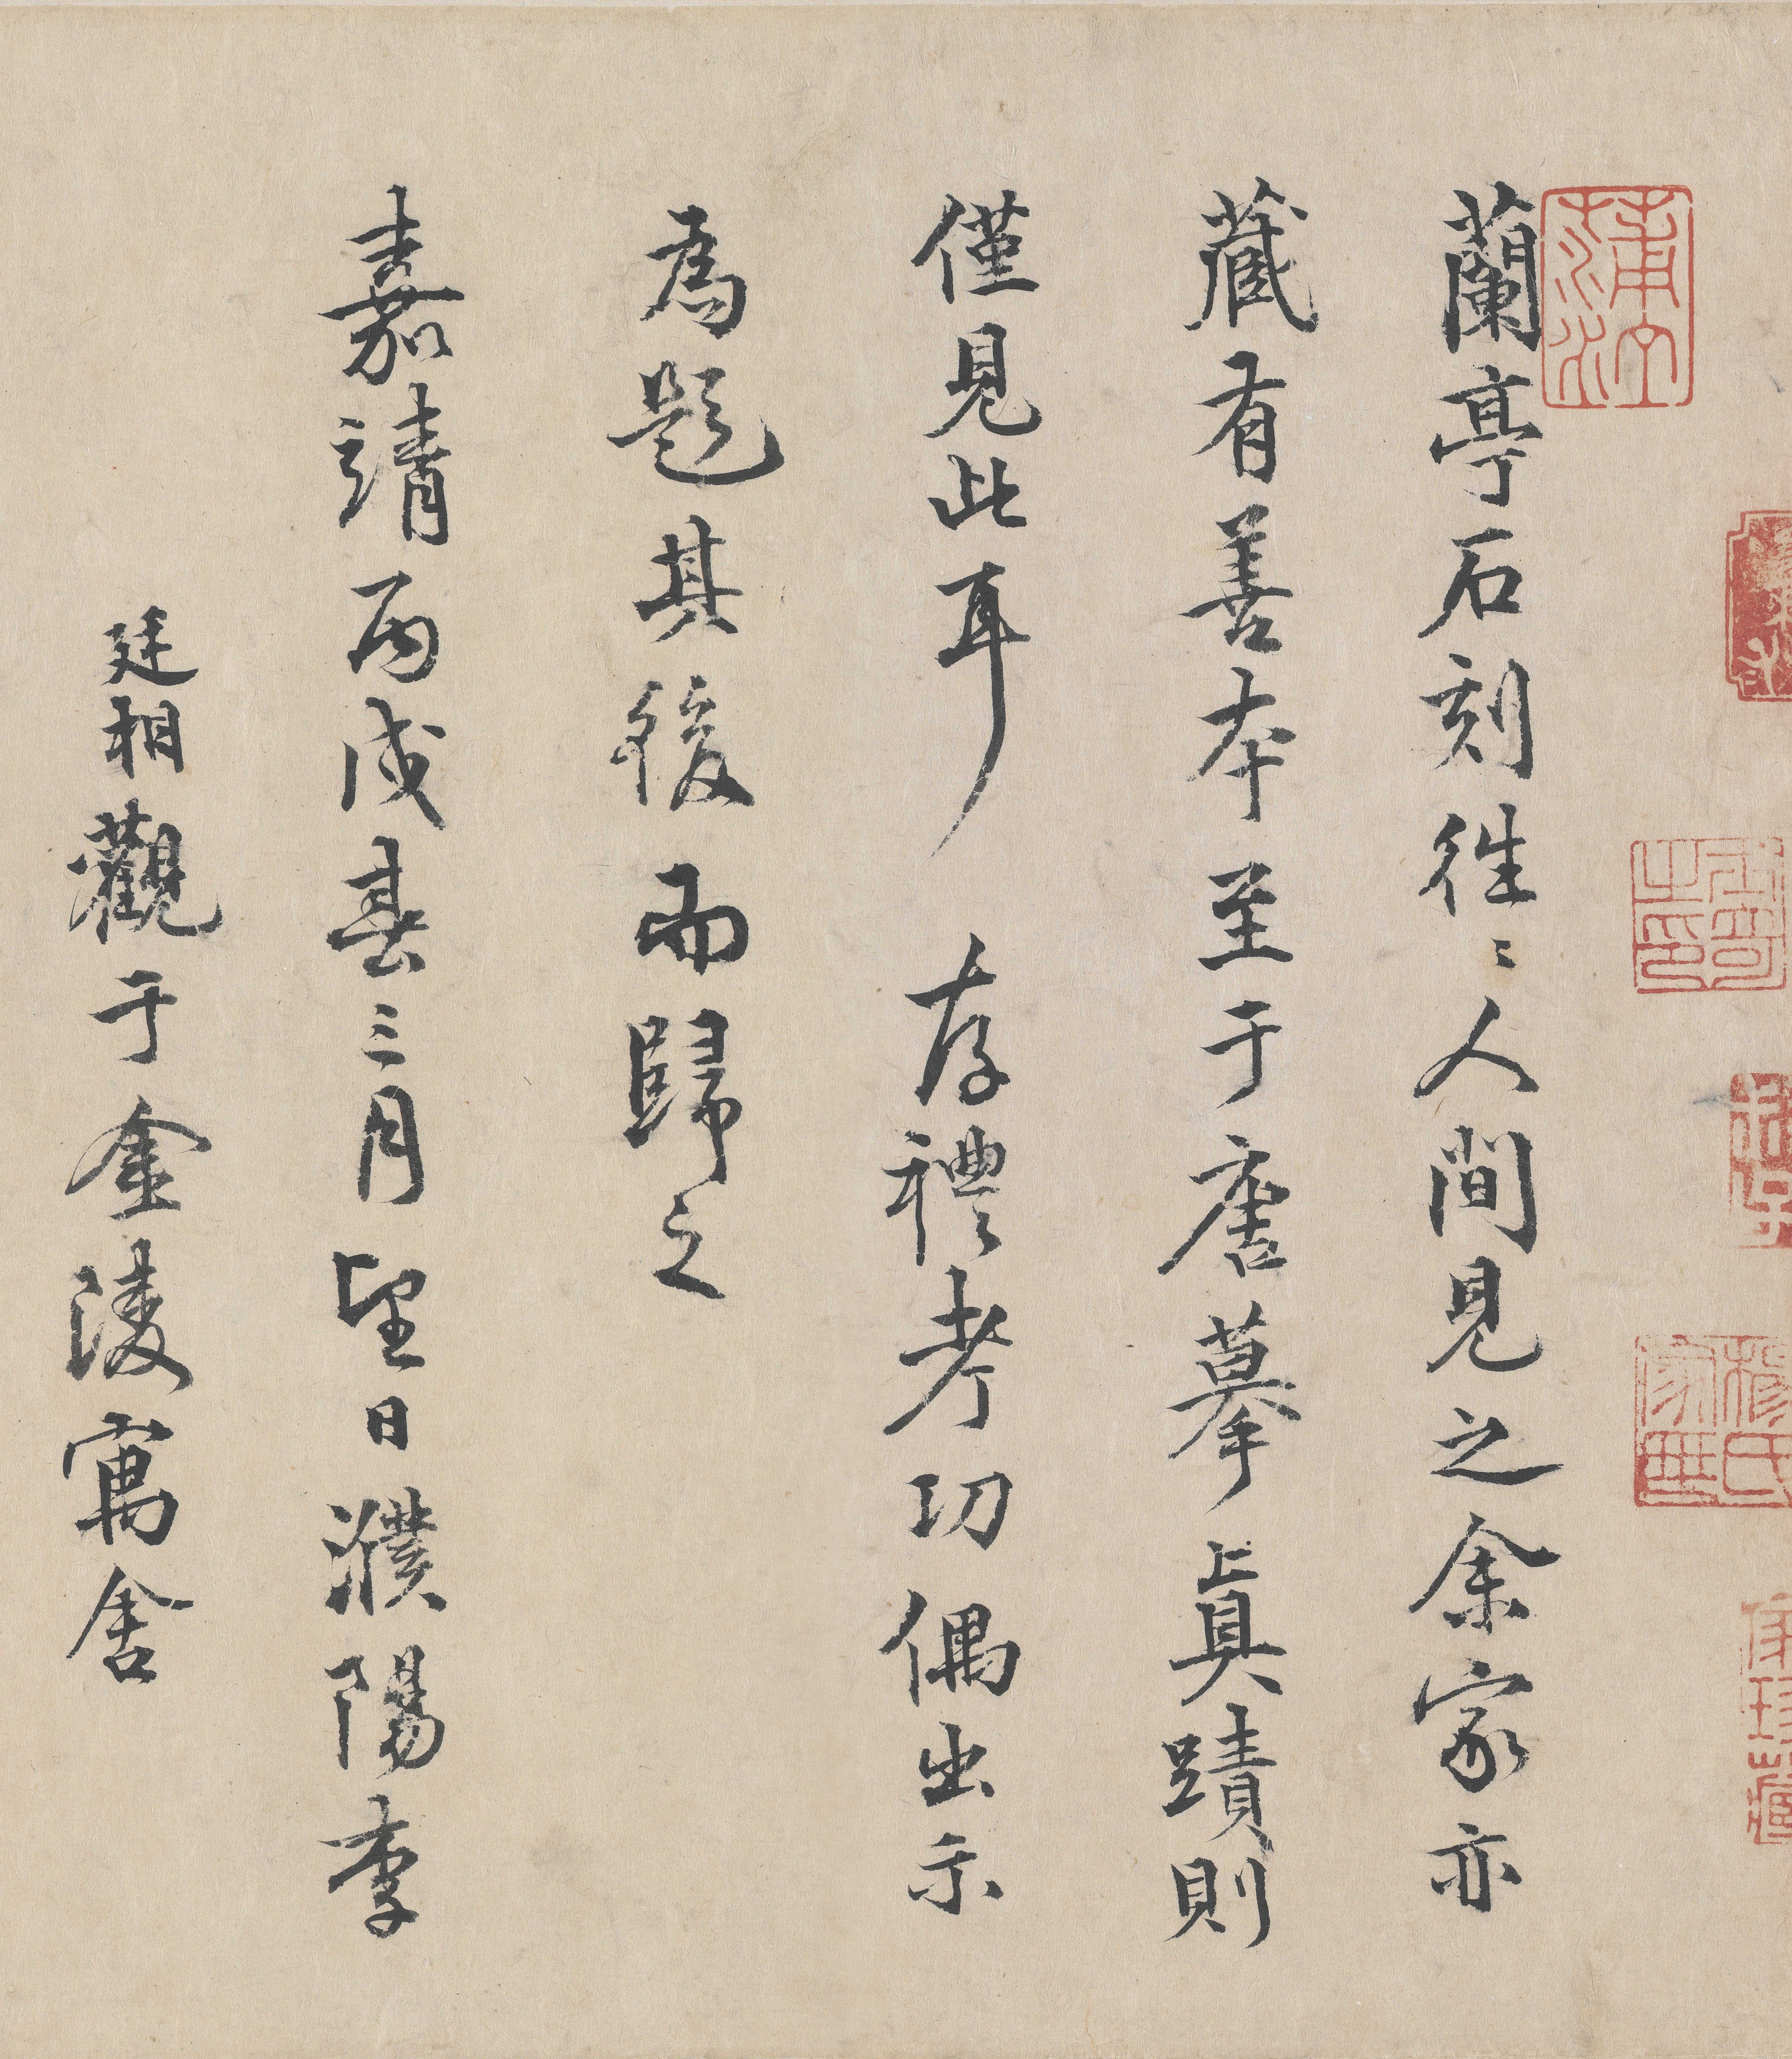 蘭亭石刻徃〻人間見之余家亦
藏有善本至于唐摹眞蹟則
僅見此耳存禮考功偶出示
為題其後而歸之
嘉靖丙戌春三月望日濮陽李
廷相觀于金陵寓舍